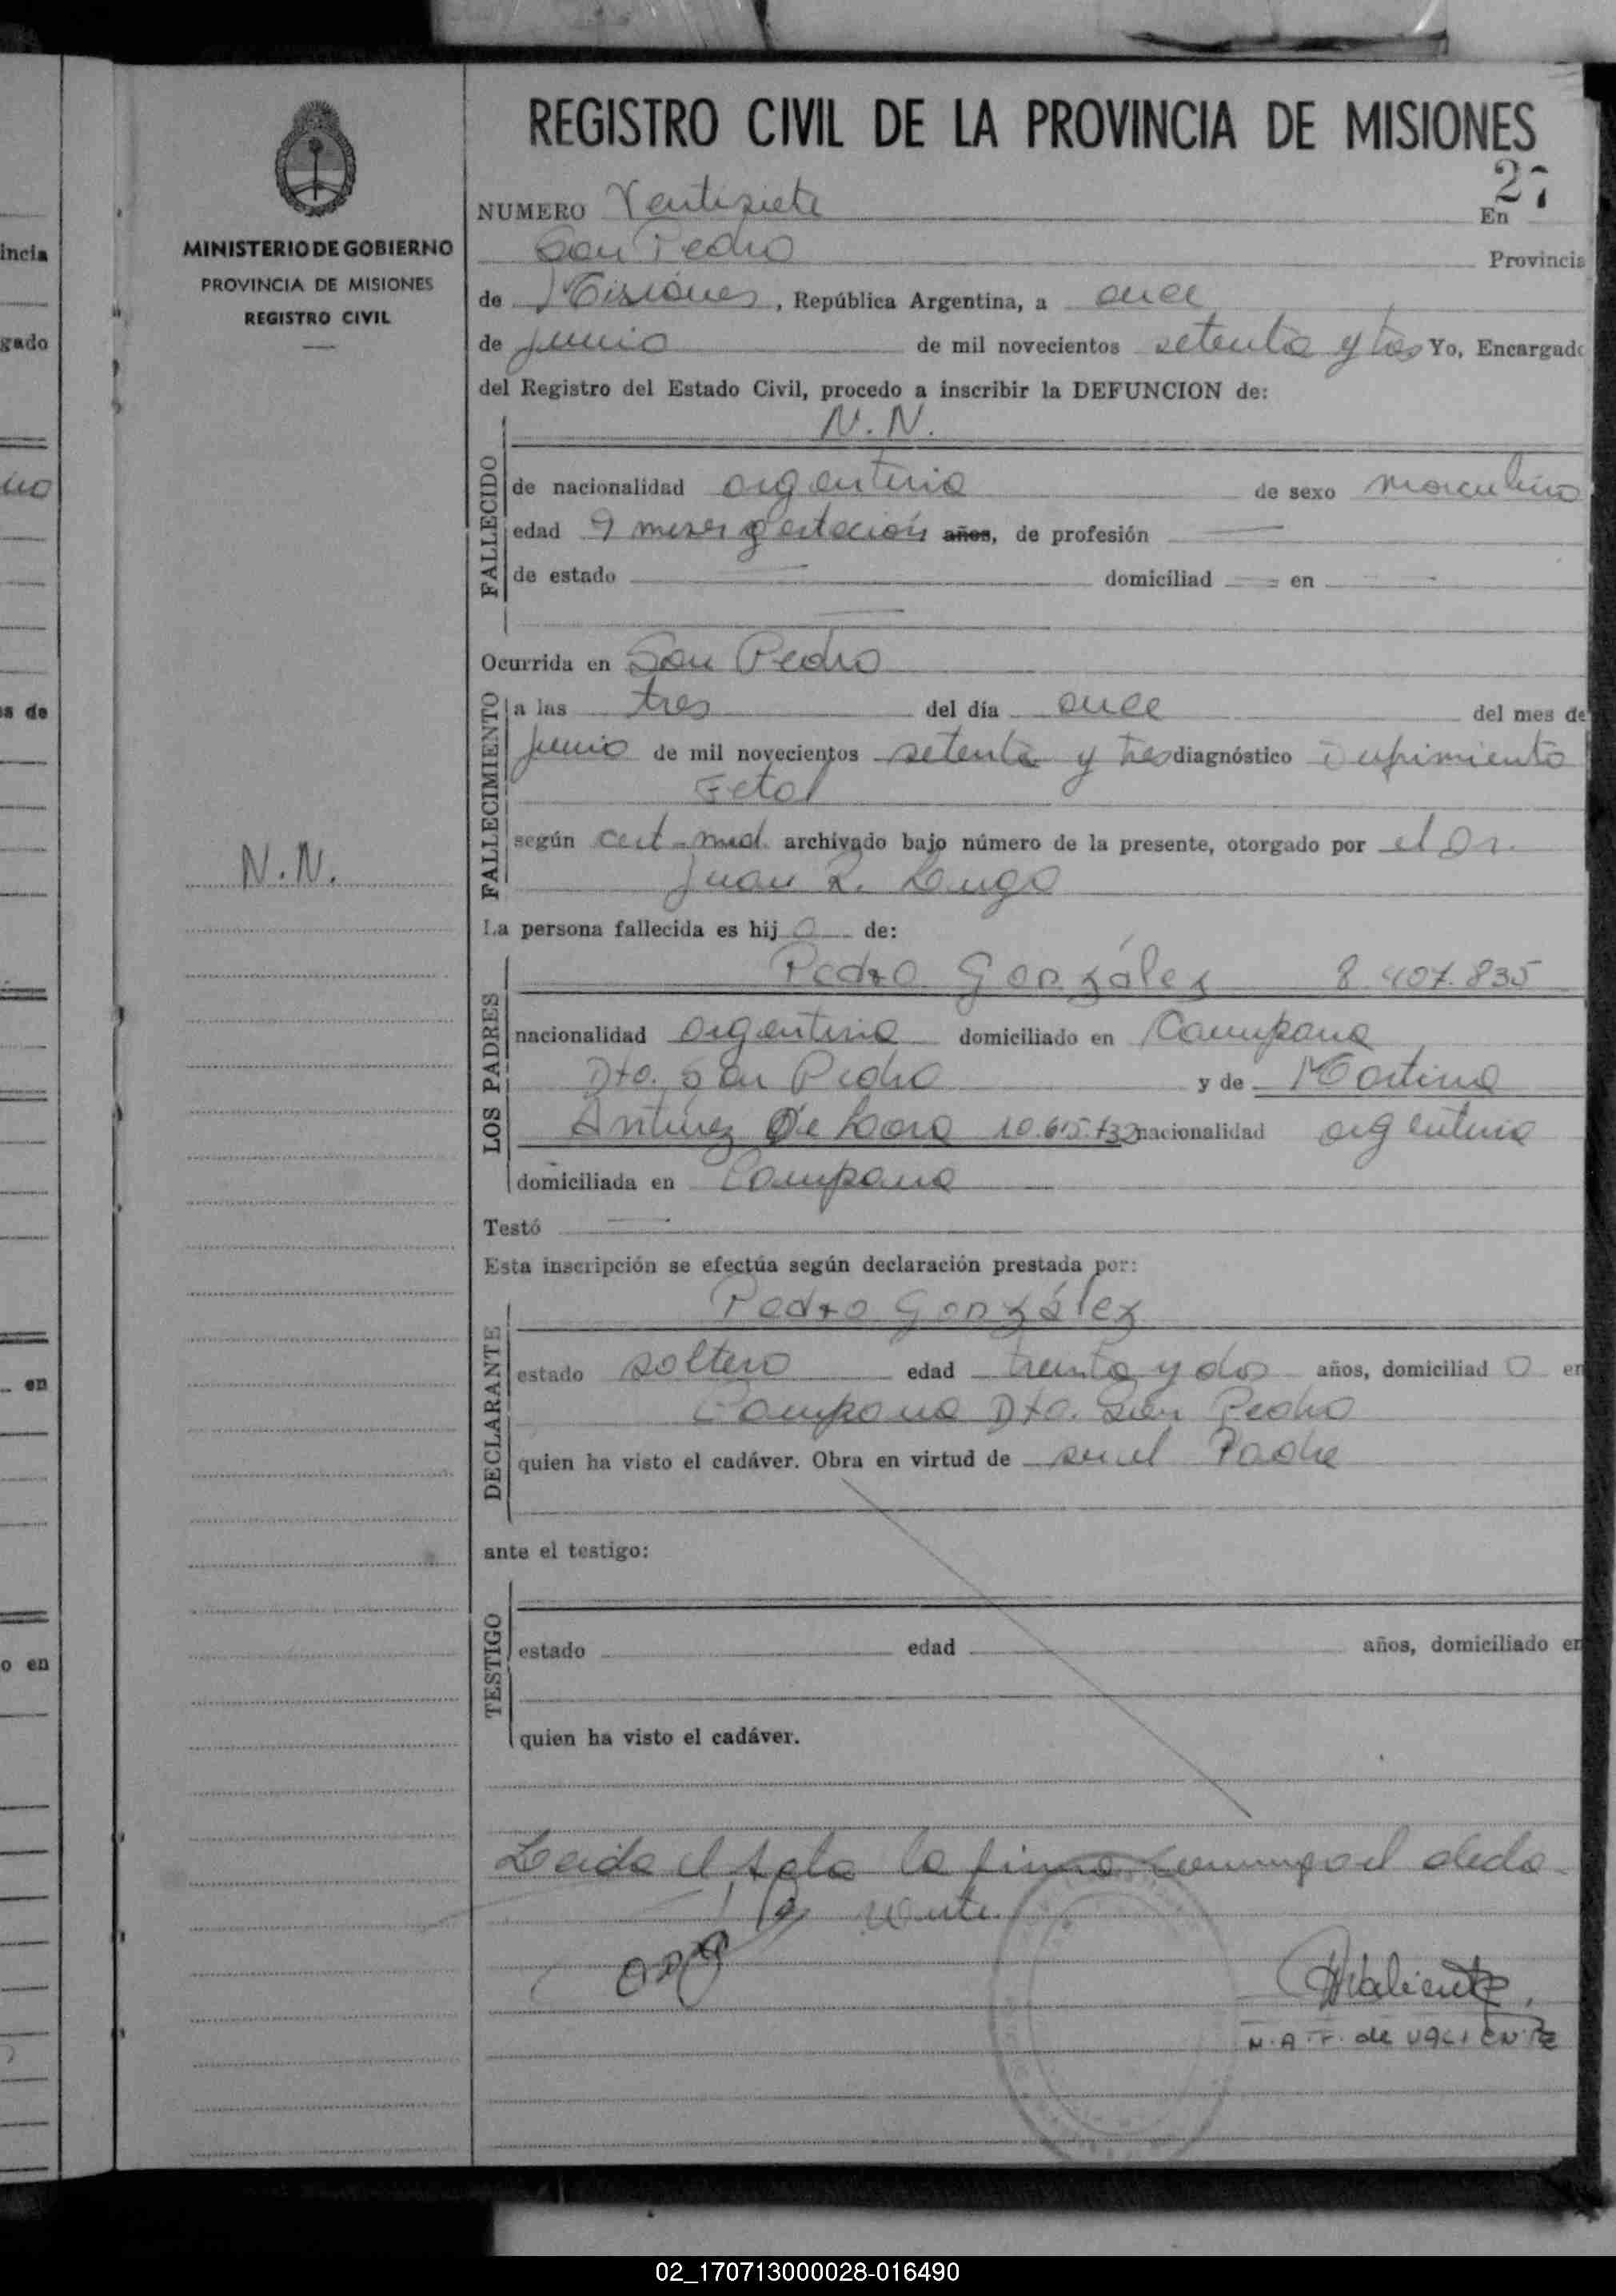 REGISTRO CIVIL DE LA PROVINCIA DE MISIONES
27
MINISTERIO DE GOBIERNO
PROVINCIA DE MISIONES
REGISTRO CIVIL
N.N.
NUMERO Ventisiete En
San Pedro Provincia
de Misiones, República Argentina, a once
de junio de mil novecientos setenta y tres Yo, Encargado
del Registro del Estado Civil, procedo a inscribir la DEFUNCION de:
N. N.
FALLECIDO
de nacionalidad argentina de sexo masculino
edad 9 meses gestación años, de profesión
de estado domiciliad en
Ocurrida en San Pedro
FALLECIMIENTO
a las tres del día once del mes de
junio de mil novecientos setenta y tres diagnóstico
Fetal
según cert. med. archivado bajo número de la presente, otorgado por el Dr.
Juan R. Lugo
La persona fallecida es hij o de:
LOS PADRES
Pedro González 8.407.835
nacionalidad argentina domiciliado en Campana
Dto. San Pedro y de Martina
Antúnez De Lara nacionalidad argentina
domiciliada en Campana
Testó
Esta inscripción se efectúa según declaración prestada por:
DECLARANTE
Pedro González
estado soltero edad treinta y dos años, domiciliad o en
Campana Dto. San Pedro
quien ha visto el cadáver. Obra en virtud de ser el Padre
ante el testigo:
TESTIGO
estado edad años, domiciliado en
quien ha visto el cadáver.
Leida el acta la firma conmigo el decla-
rante.
N. A. F. de VALIENTE
incia
gado
s de
en
o en
02_170713000028-016490